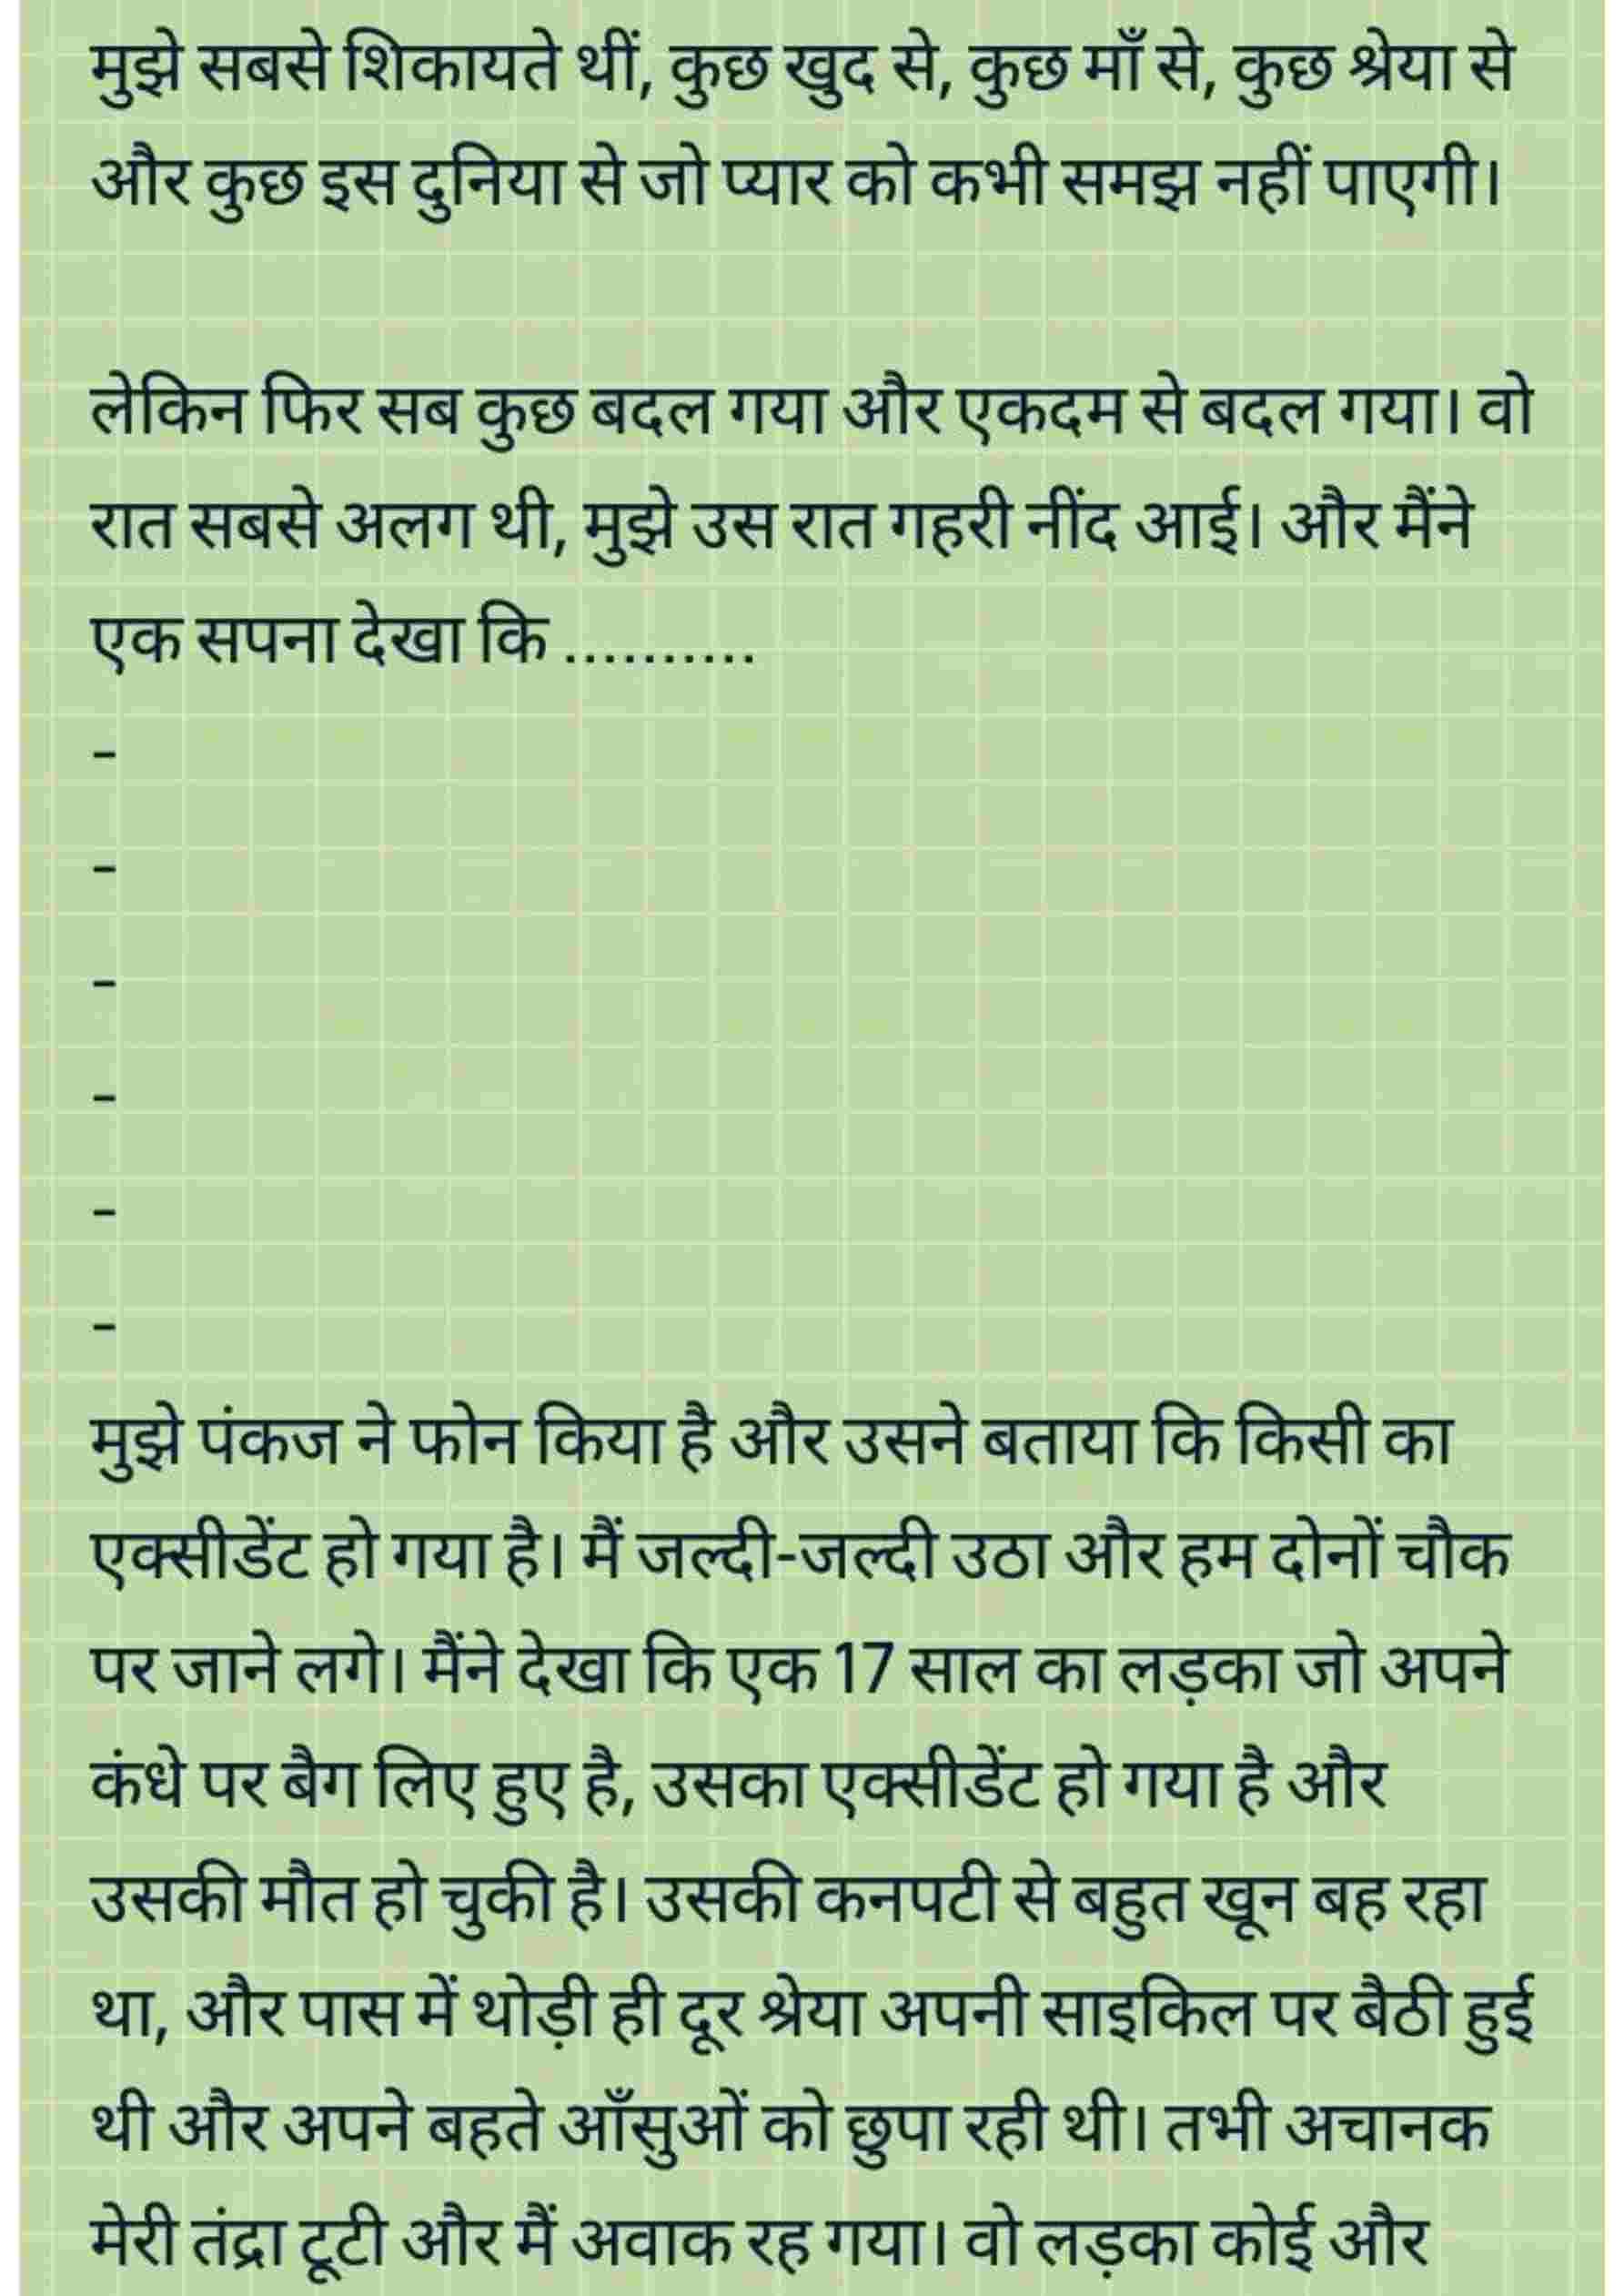 मुझे सबसे शिकायते थीं, कुछ खुद से, कुछ माँ से, कुछ श्रेया से
और कुछ इस दुनिया से जो प्यार को कभी समझ नहीं पाएगी।
लेकिन फिर सब कुछ बदल गया और एकदम से बदल गया। वो
रात सबसे अलग थी, मुझे उस रात गहरी नींद आई। और मैंने
एक सपना देखा कि ..........
–
–
–
–
–
–
मुझे पंकज ने फोन किया है और उसने बताया कि किसी का
एक्सीडेंट हो गया है। मैं जल्दी-जल्दी उठा और हम दोनों चौक
पर जाने लगे। मैंने देखा कि एक 17 साल का लड़का जो अपने
कंधे पर बैग लिए हुए है, उसका एक्सीडेंट हो गया है और
उसकी मौत हो चुकी है। उसकी कनपटी से बहुत खून बह रहा
था, और पास में थोड़ी ही दूर श्रेया अपनी साइकिल पर बैठी हुई
थी और अपने बहते आँसुओं को छुपा रही थी। तभी अचानक
मेरी तंद्रा टूटी और मैं अवाक रह गया। वो लड़का कोई और